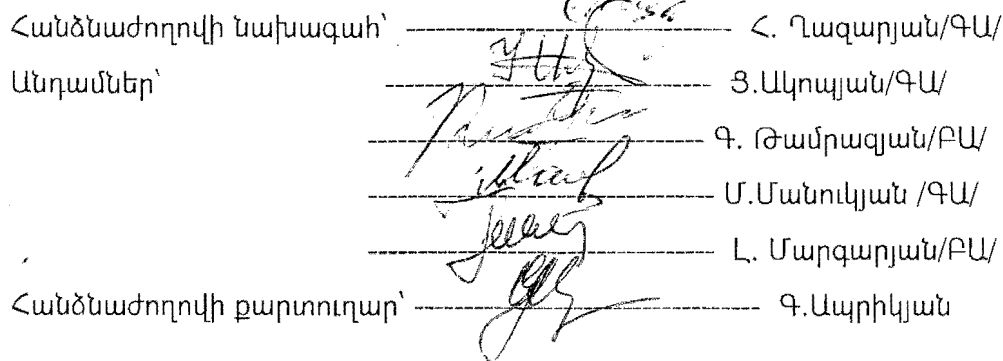 Հանձնաժողովի նախագահ՝ ---------- Հ. Ղազարյան/ԳԱ/
Անդամներ՝ ---------- Ց.Ակոպյան/ԳԱ/
---------- Գ. Թամրազյան/ԲԱ/
---------- Մ.Մանուկյան /ԳԱ/
---------- Լ. Մարգարյան/ԲԱ/
Հանձնաժողովի քարտուղար՝ ---------- Գ.Ապրիկյան